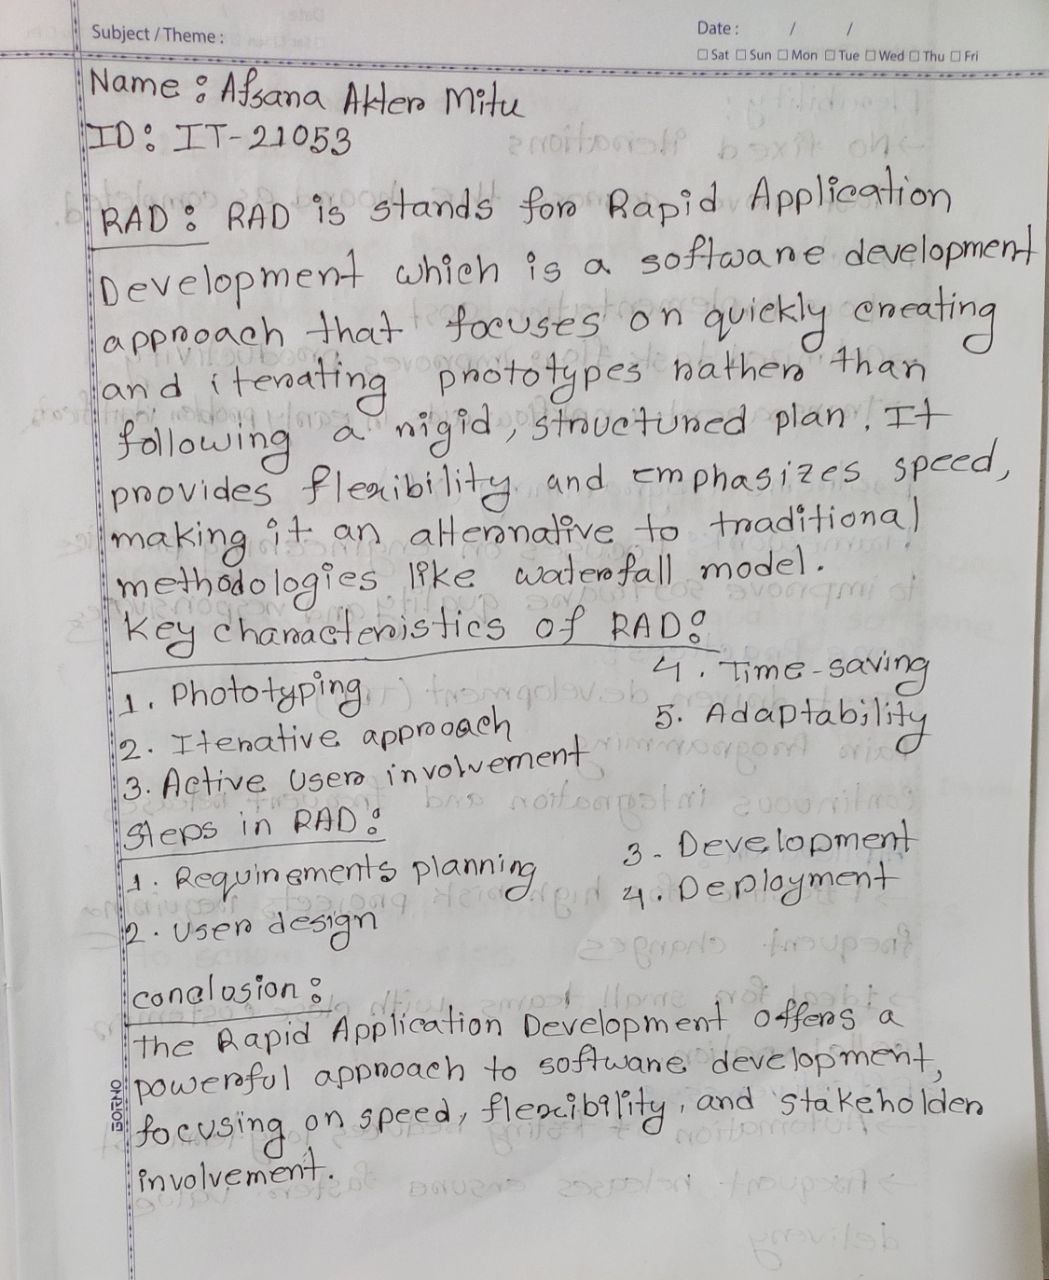 Subject / Theme :
Date : / /
Sat Sun Mon Tue Wed Thu Fri
Name : Afsana Akter Mitu
ID: IT-21053
RAD: RAD is stands for Rapid Application
Development which is a software development
approach that focuses on quickly creating
and iterating prototypes rather than
following a rigid, structured plan. It
provides flexibility and emphasizes speed,
making it an alternative to traditional
methodologies like waterfall model.
Key characteristics of RAD:
1. Phototyping
2. Iterative approach
3. Active user involvement
4. Time-saving
5. Adaptability
Steps in RAD:
1. Requirements planning
2. User design
3. Development
4. Deployment
conclosion:
The Rapid Application Development offers a
powerful approach to software development,
focusing on speed, flexibility, and stakeholder
involvement.
BORNO